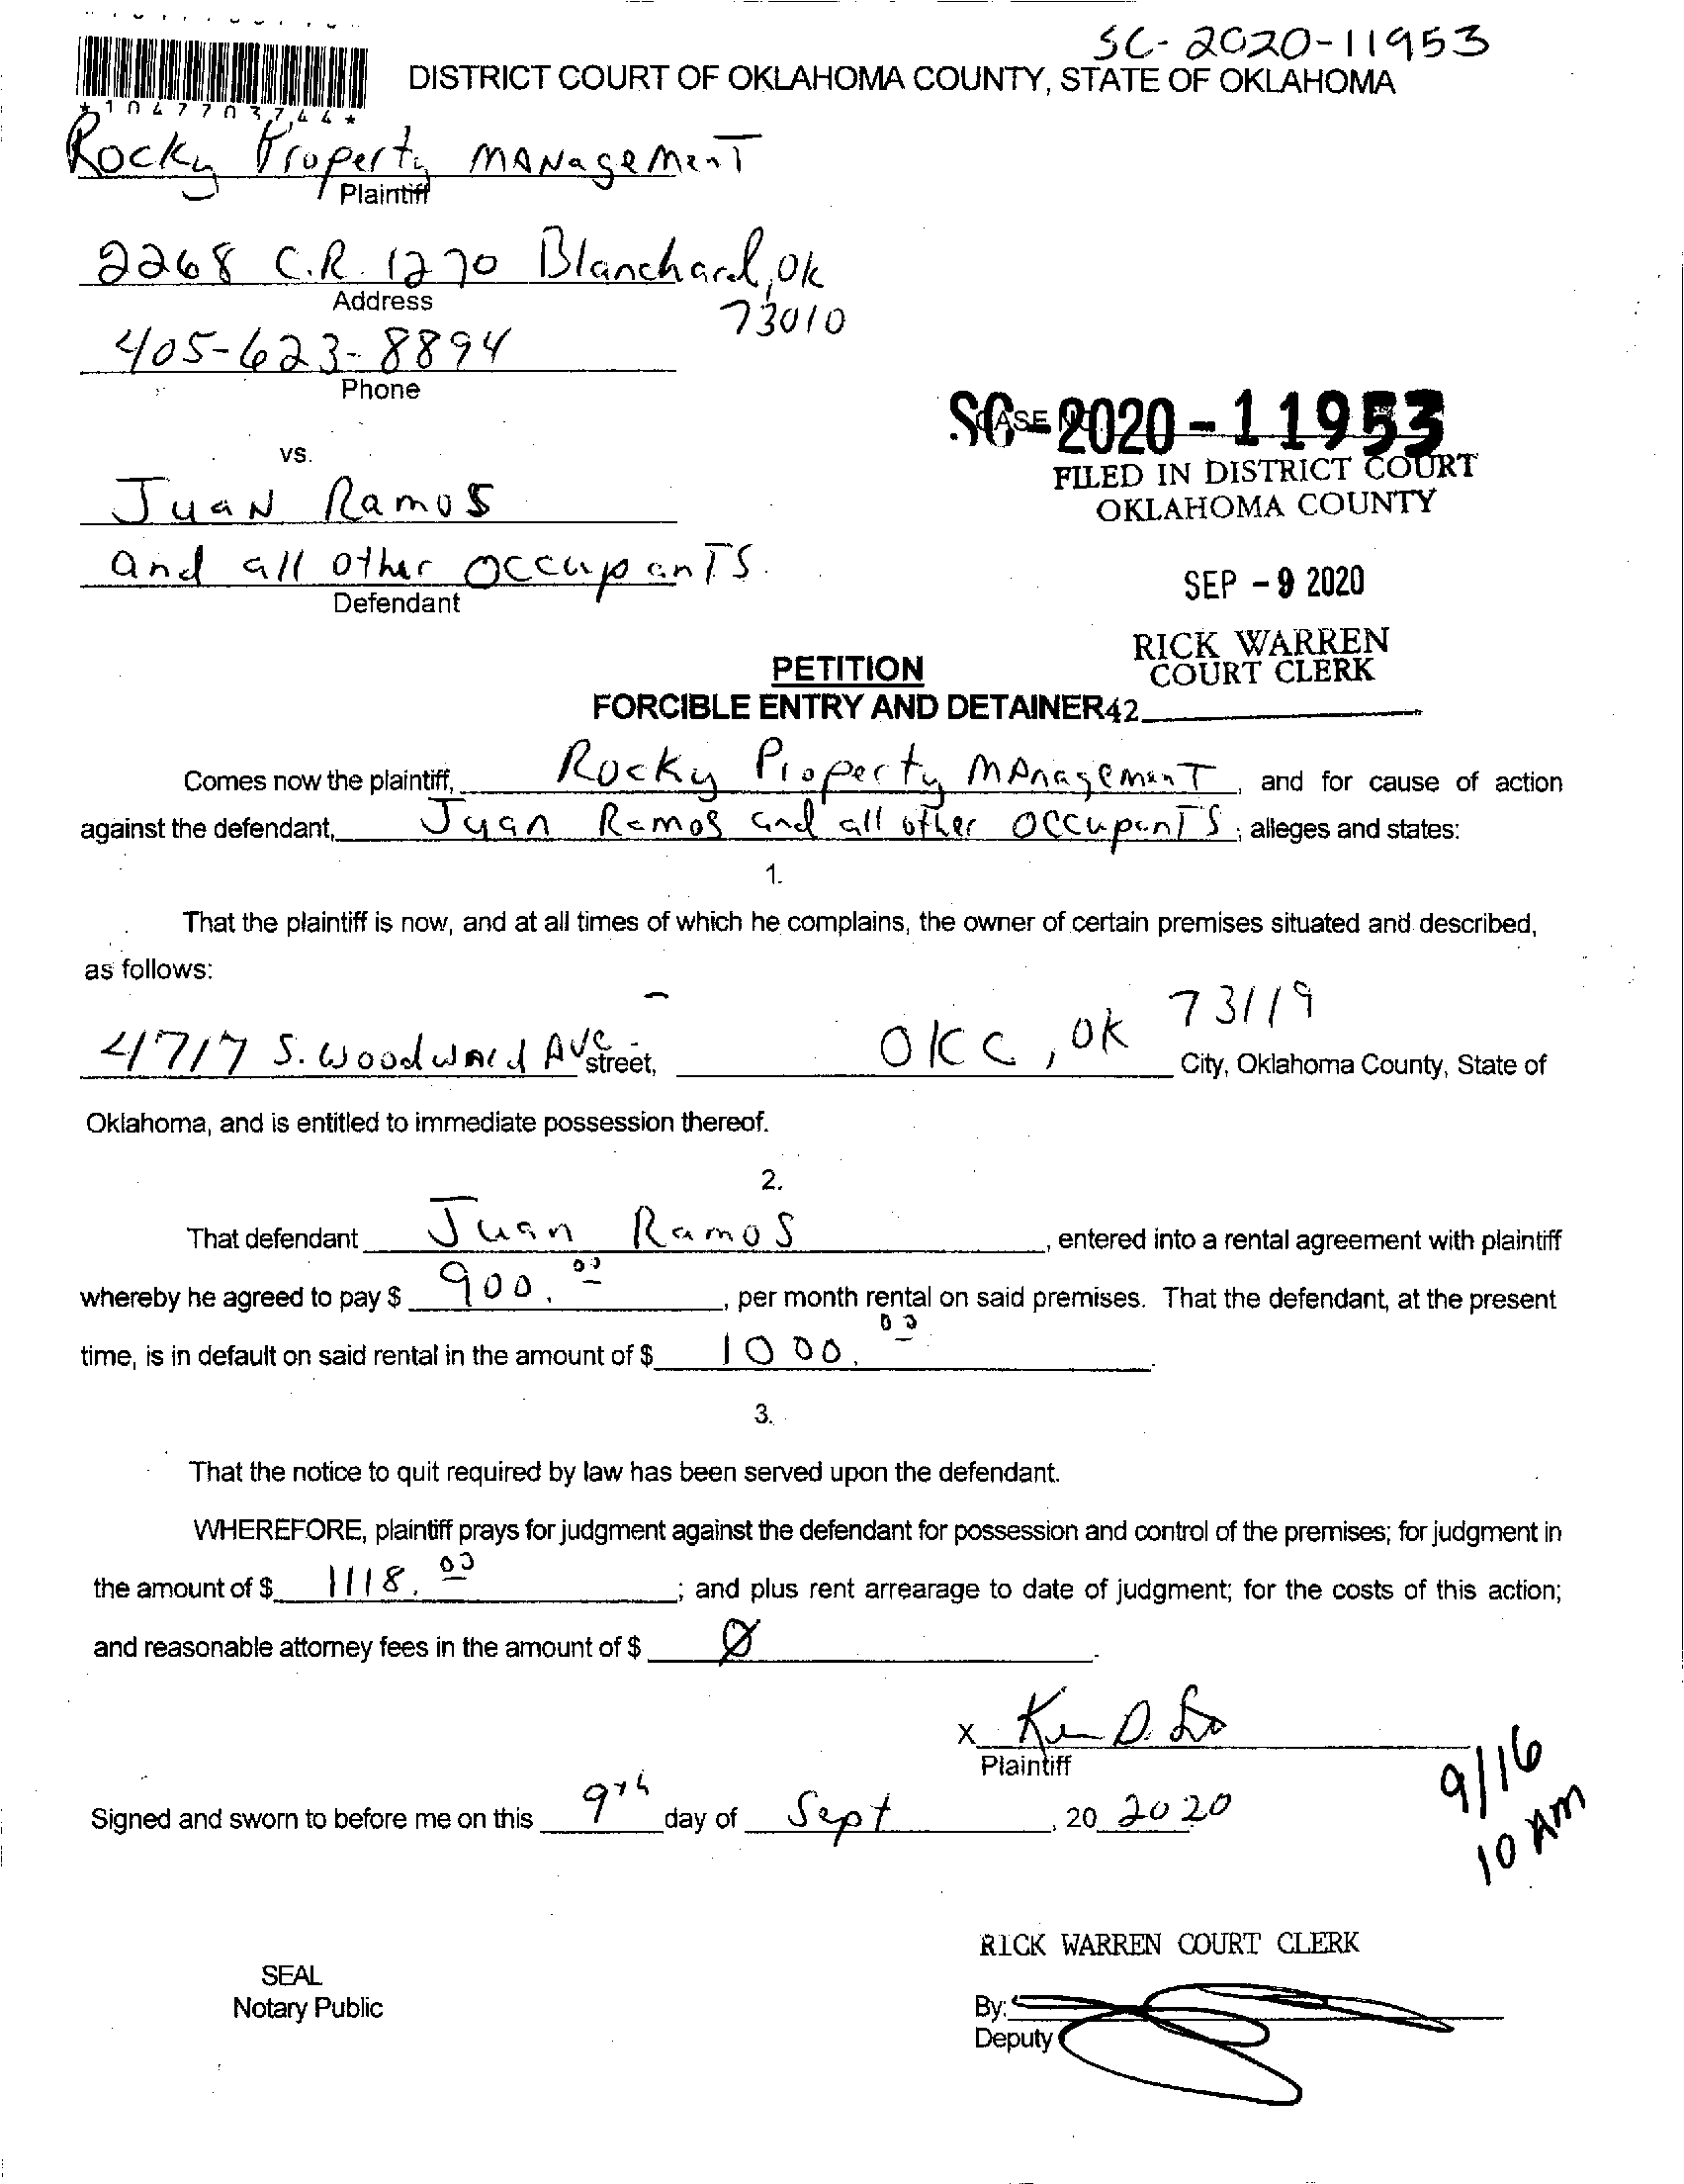 SC-2020-11953
DISTRICT COURT OF OKLAHOMA COUNTY, STATE OF OKLAHOMA
*1047703744*
Rocky Property MANAgeMenT
Plaintiff
2268 C.R. 1270 Blanchard, Ok
Address
73010
405-623-8894
Phone
SC-2020-11953
CASE NO.
vs.
FILED IN DISTRICT COURT
OKLAHOMA COUNTY
JuaN Ramos
and all other OccupanTS.
Defendant
SEP -9 2020
RICK WARREN
COURT CLERK
PETITION
FORCIBLE ENTRY AND DETAINER 42
Comes now the plaintiff, Rocky Property MAnageMenT, and for cause of action
against the defendant, Juan Ramos and all other OccupanTS; alleges and states:
1.
That the plaintiff is now, and at all times of which he complains, the owner of certain premises situated and described,
as follows:
4717 S. WoodwArd Ave street, OKC, OK 73119 City, Oklahoma County, State of
Oklahoma, and is entitled to immediate possession thereof.
2.
That defendant Juan Ramos, entered into a rental agreement with plaintiff
whereby he agreed to pay $ 900.00, per month rental on said premises. That the defendant, at the present
time, is in default on said rental in the amount of $ 1000.00.
3.
That the notice to quit required by law has been served upon the defendant.
WHEREFORE, plaintiff prays for judgment against the defendant for possession and control of the premises; for judgment in
the amount of $ 1118.00; and plus rent arrearage to date of judgment; for the costs of this action;
and reasonable attorney fees in the amount of $ Ø.
X
Plaintiff
9/16
10 AM
Signed and sworn to before me on this 9th day of Sept, 20 2020
RICK WARREN COURT CLERK
SEAL
Notary Public
By:
Deputy